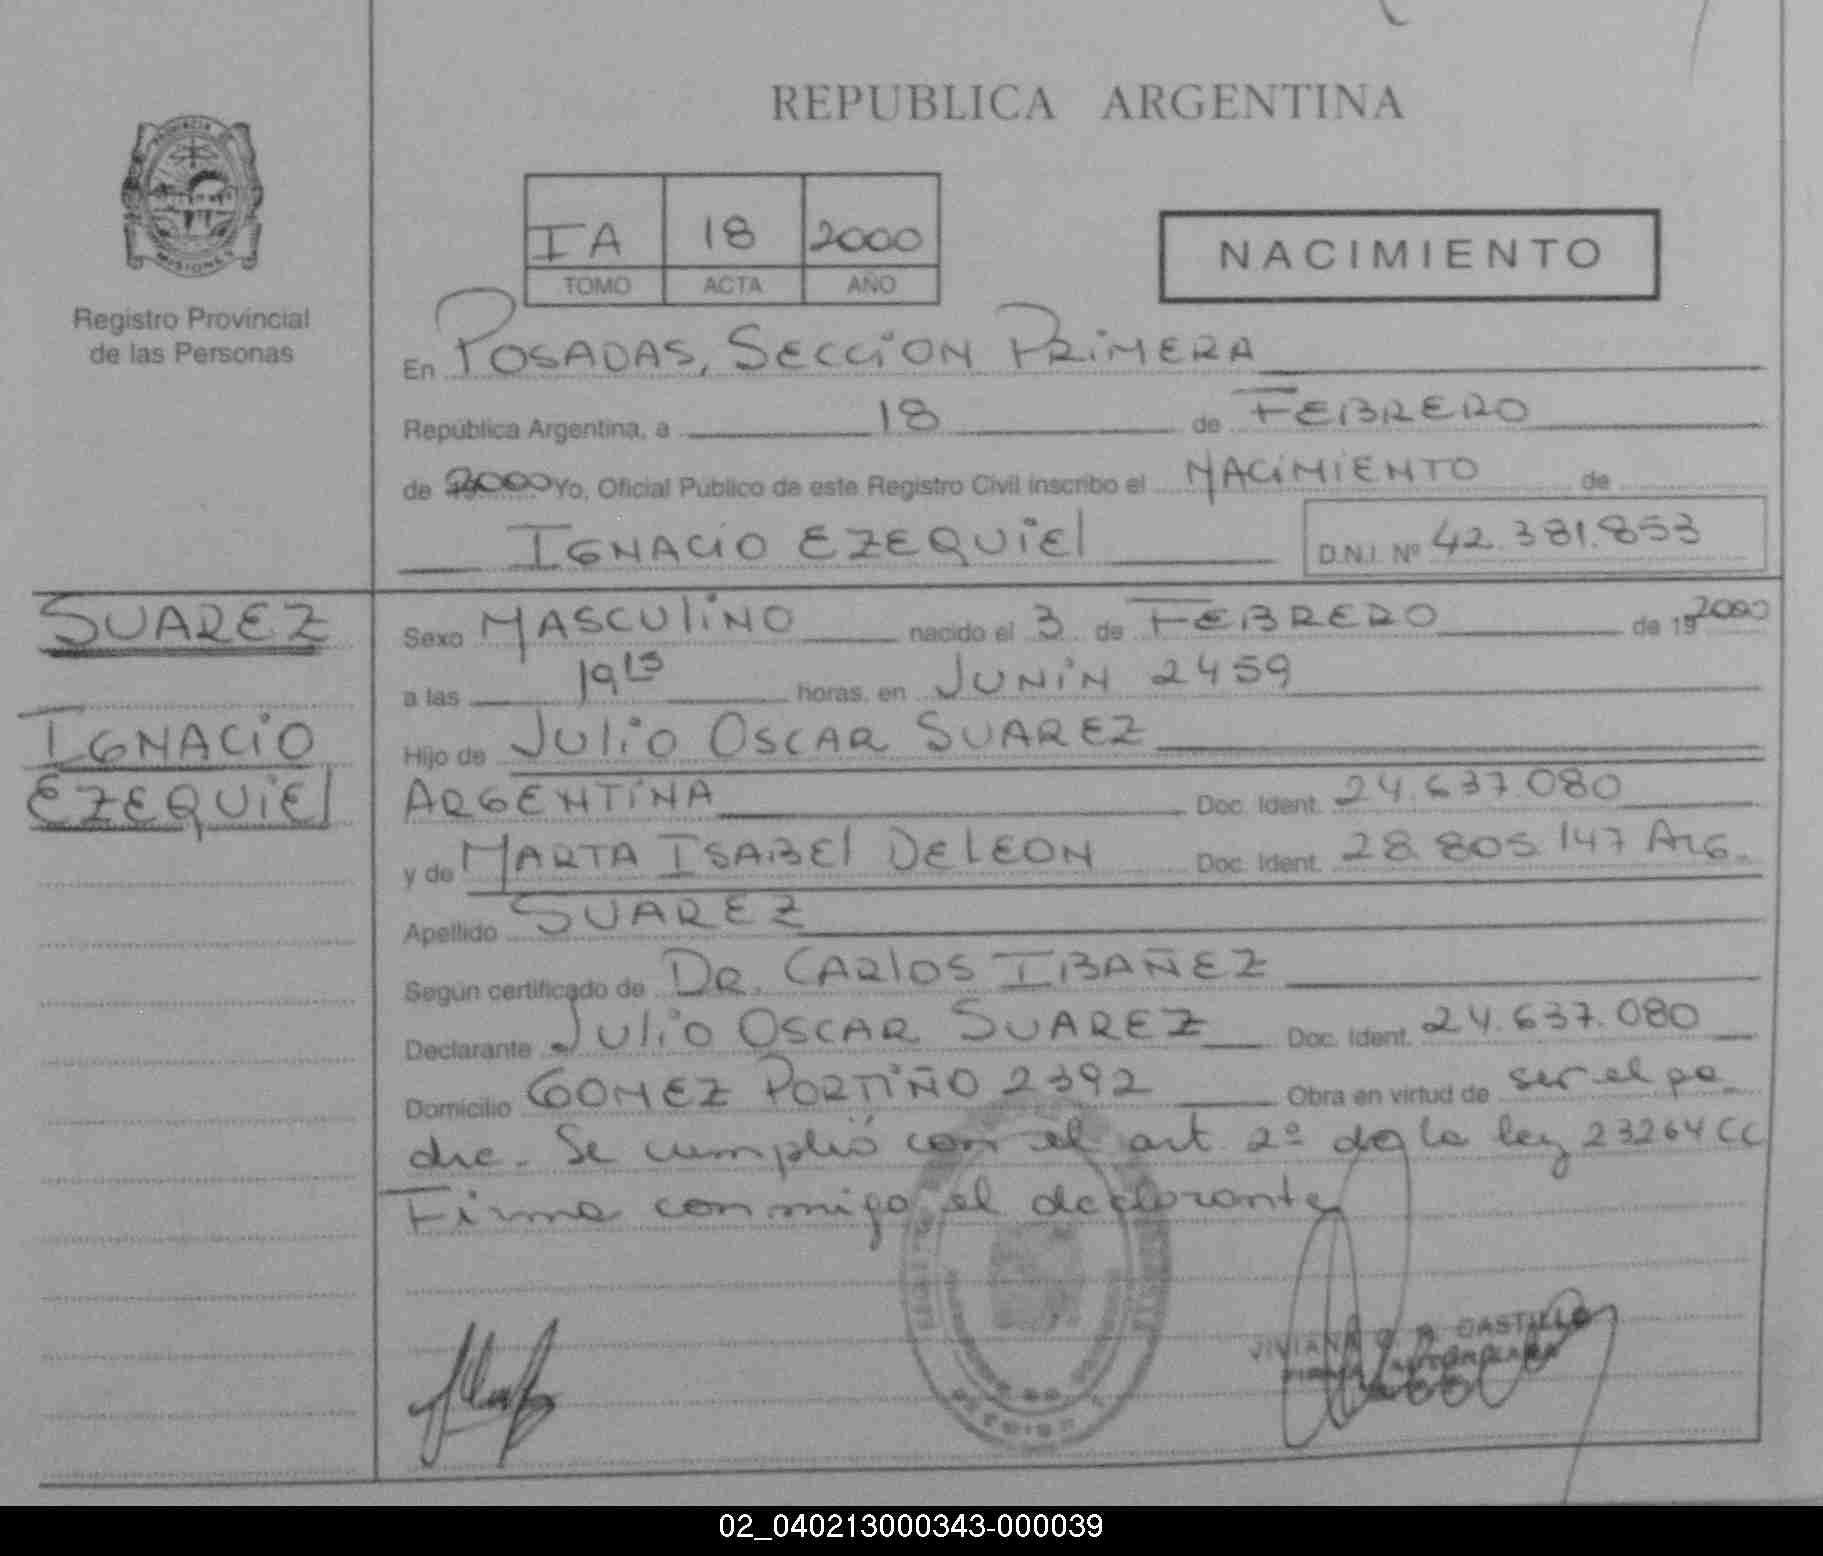 REPUBLICA ARGENTINA
PROVINCIA
MISIONES
Registro Provincial
de las Personas
IA 18 2000
TOMO ACTA AÑO
NACIMIENTO
En POSADAS, SECCION PRIMERA
República Argentina, a 18 de FEBRERO
de 2000 Yo, Oficial Público de este Registro Civil inscribo el NACIMIENTO de
IGNACIO EZEQUIEL D.N.I. Nº 42.381.853
SUAREZ
IGNACIO
EZEQUIEL
Sexo MASCULINO nacido el 3 de FEBRERO de 19 2000
a las 19 15 horas, en JUNIN 2459
Hijo de JULIO OSCAR SUAREZ
ARGENTINA Doc. Ident. 24.637.080
y de MARTA ISABEL DELEON Doc. Ident. 28.805.147 ARG.
Apellido SUAREZ
Según certificado de DR. CARLOS IBAÑEZ
Declarante JULIO OSCAR SUAREZ Doc. Ident. 24.637.080
Domicilio GOMEZ PORTIÑO 2392 Obra en virtud de ser el pa
dre. Se cumplió con el art. 2º de la ley 23264 CC
Firma conmigo el declarante
CASTILLO
02_040213000343-000039